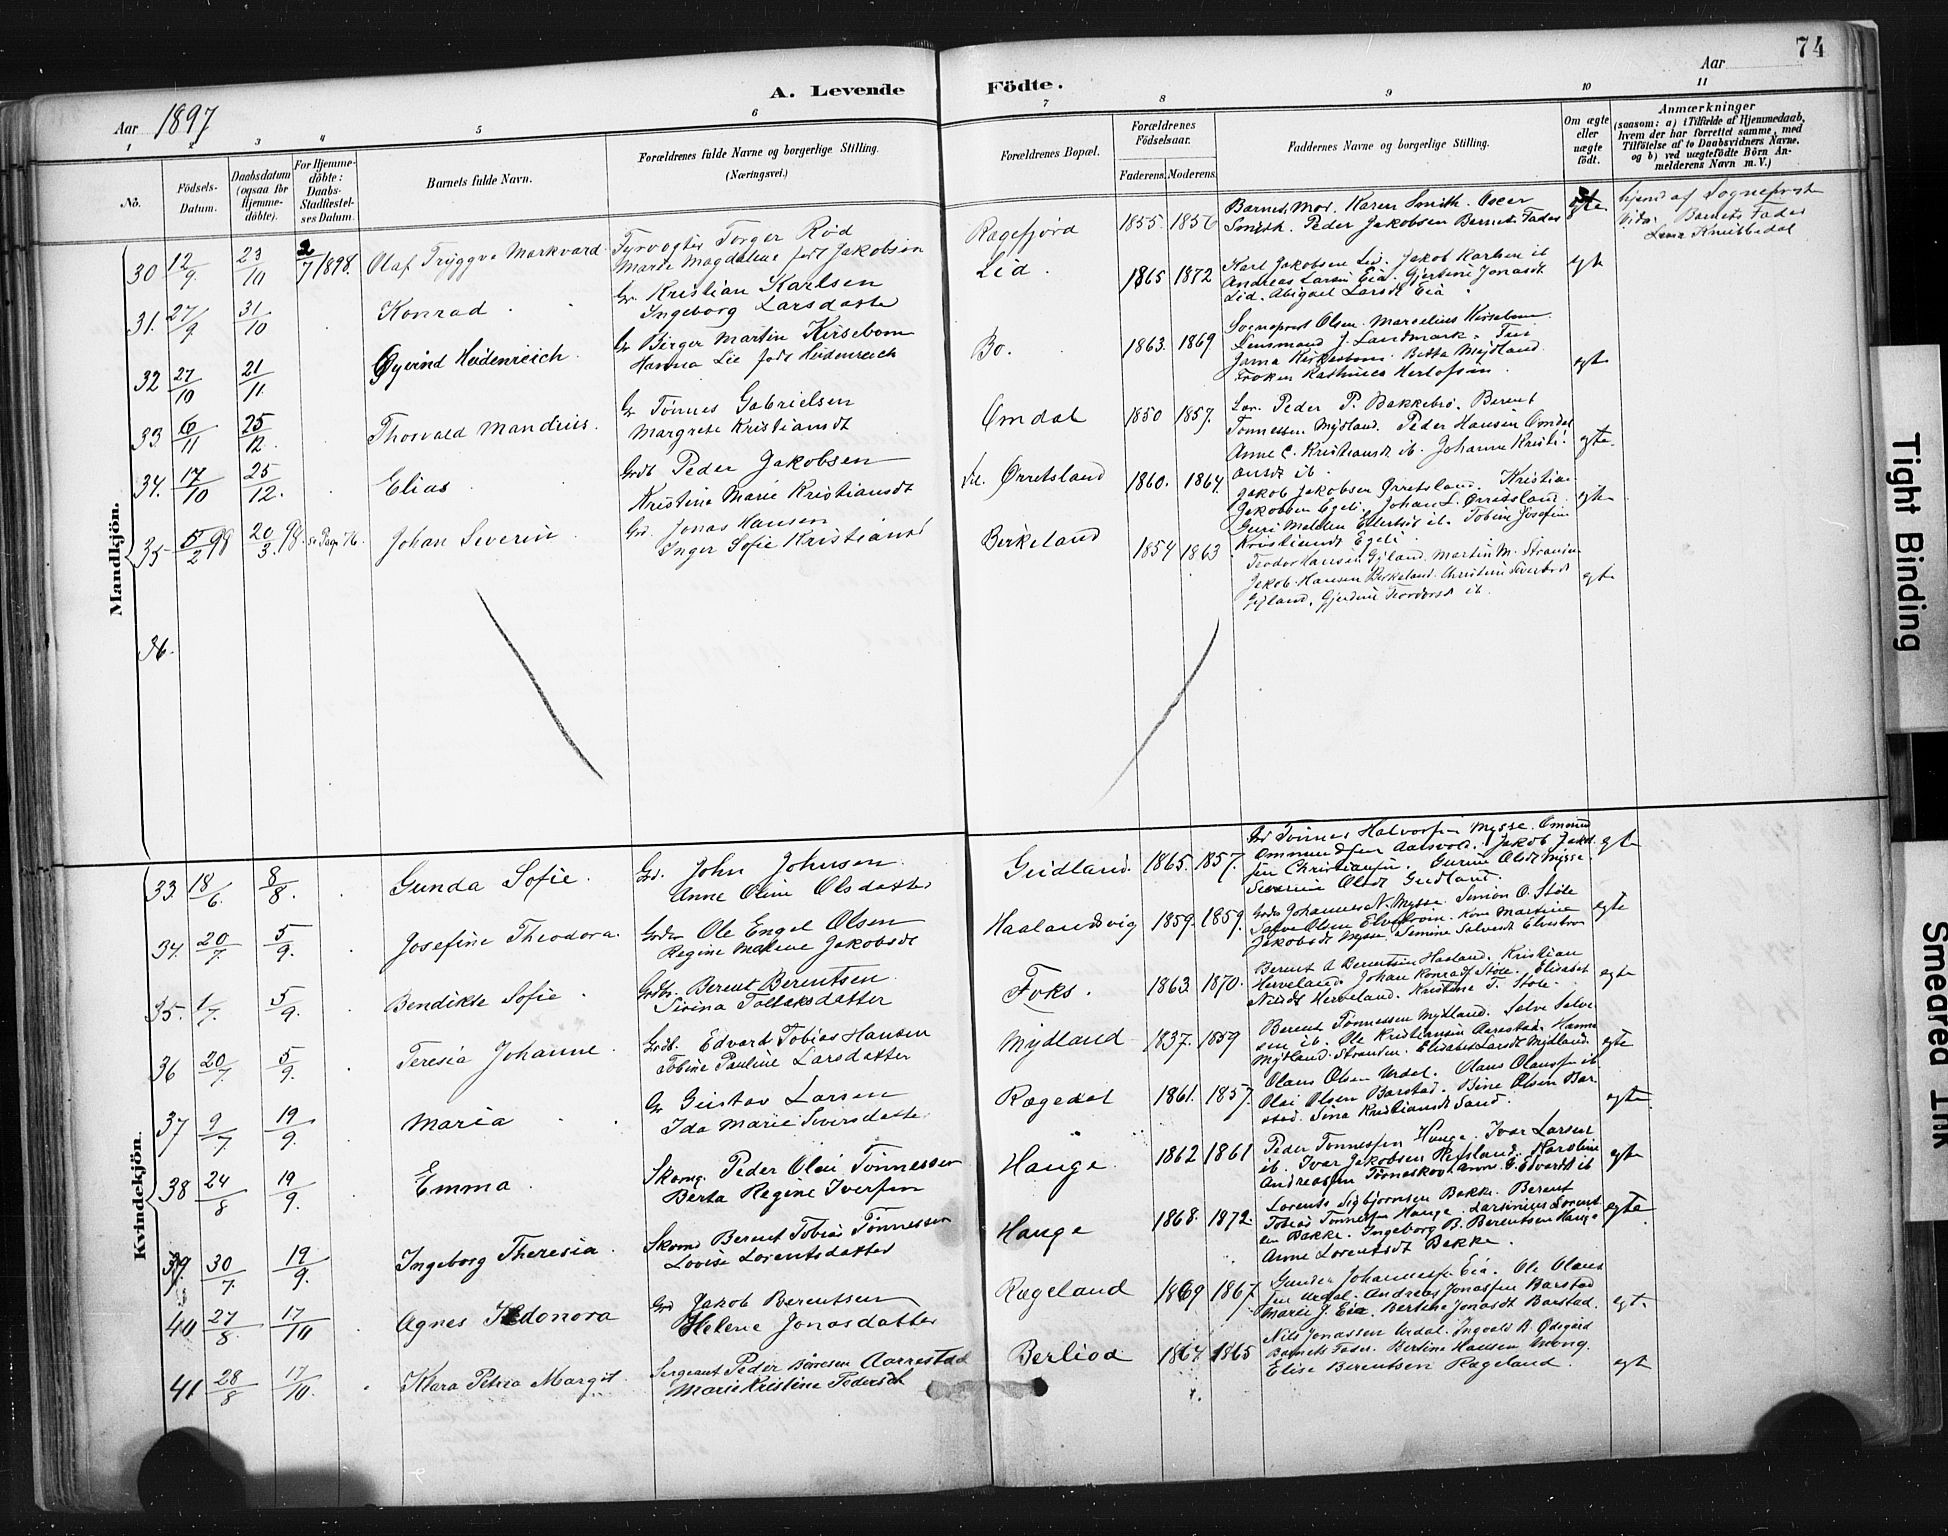 74
Aar 1897
A. Levende Födte.
Aar
1 2 3 4 5 6 7 8 9 10 11
Nō.
Födsels-Datum.
Daabsdatum (ogsaa for Hjemme-döbte).
For Hjemme-döbte: Daabs-Stadfæstel-ses Datum.
Barnets fulde Navn.
Forældrenes fulde Navne og borgerlige Stilling.
(Næringsvei.)
Forældrenes Bopæl.
Forældrenes Födselsaar.
Faderens. Moderens.
Faddernes Navne og borgerlige Stilling.
Om ægte eller uægte födt.
Anmærkninger
(saasom: a) i Tilfælde af Hjemmedaab,
hvem der har forrettet samme, med
Tilföielse af to Daabsvidners Navne,
og b) ved uægtefödte Börn An-
melderens Navn m. V.)
Mandkjön.
30 12/9 23/10 2/7 1898. Olaf Tryggve Markvard
Fyrvogter Torger Röd
Marie Magdalene født Jakobsen
Rægefjord 1855. 1856
Barnets Mor. Karen Smith. Oscar
Smith. Peder Jakobsen Barnets Fader
egte
Hjemd af Sogneprest
Barnets Fader
31. 27/9 31/10 Konrad
Gr. Kristian Karlsen
Ingeborg Larsdatter
Lid. 1865 1872
Karl Jakobsen Lid. Jakob Karlsen ib
Andreas Larsen Eia. Gjertine Jonasdt
Lid. Abigael Larsdt Eia
egte
32 27/10 21/11. Øyvind Heidenreich.
Gr Birger Martin Kirsebom
Hanna Lie født Heidenreich
Bo. 1863. 1869
Sogneprest Olsen. Marcelius Kirsebom
Lensmand J. Landmark. Fru
Berta Mydland.
Frøken Kathinca Herlofsen.
egte
33 6/11 25/12. Thorvald Mandius.
Gr Tönnes Gabrielsen
Margrete Kristiansdt
Omdal 1850 1857.
Peder P. Bakkebø. Berent
Tønnessen Mydland. Peder Hansen Omdal
Anne C. Kristiansdt ib. Johanne Kristi-
ansdt ib.
egte.
34. 17/10 25/12. Elias
Grdb Peder Jakobsen
Kristine Marie Kristiansdt
Ørretsland 1860. 1864.
Jakob Jakobsen Ørretsland. Kristian
Jakobsen Egeli. Johan L. Ørretsland.
Guri Malene Ellertsdt ib. Tobine Josefine
Kristiansdt Egeli.
egte
35 5/2 98 20/3. 98. se Pag. 76. Johan Severin
Gr. Jonas Hansen
Inger Sofie Kristiansd
Birkeland 1854 1863
Teodor Hansen Gyland. Martin M. Stransen
Jakob Hansen Birkeland. Christine Sivertsdt
Gyland. Gjerdine Teodorsdt ib.
egte
36.
Kvindekjön.
33. 18/6. 8/8. Gunda Sofie.
Gr. John Johnsen.
Anne Oline Olsdatter
Gudland. 1865. 1857.
Gr Tönnes Halvorsen Mysse. Ommund
Ommundsen Aarsvold. Jakob Jakob
sen Christiansen. Gurine Olsdt Mysse
Severine Olsdt Gudland.
egte
34. 20/7. 5/9. Josefine Theodora.
Grdbr Ole Engel Olsen
Regine Malene Jakobsdt
Haalandsvig 1859. 1859.
Grdbr Johannes N. Mysse. Simon O. Støle
Salve Olsen Elvestrøm. Kone Martine
Jakobsdt Mysse. Semine Salvesdt Elvestrøm
egte
35. 1/7. 5/9. Bendikte Sofie.
Grdbr. Berent Berentsen.
Sirina Tollaksdatter
Foks. 1863 1870.
Berent A Berentsen Haaland. Kristian
Herveland. Johan Konrad Støle. Elisabet
Nilsdt Herveland. Kristine T. Støle.
egte
36 20/7. 5/9. Teresia Johanne.
Grdb. Edvard Tobias Hansen
Tobine Pauline Larsdatter
Mydland 1837. 1859
Berent Tønnessen Mydland. Salve Salve
sen ib. Ole Kristiansen Aarestad. Hanna
Mydland. Stransen. Elisabet Larsdt Mydland.
egte
37 9/7. 19/9. Maria
Gr Gustav Larsen
Ida Marie Siversdatter
Rægedal 1861. 1857.
Olaus Olsen Urdal. Olaus Olaussen ib
Olai Olsen Barstad. Bine Olsen Bar
stad. Sina Kristiansdt Sand.
egte
38 24/8 19/9. Emma.
Skomg. Peder Olai Tønnessen
Berta Regine Iversen
Hauge. 1862 1861
Peder Tønnessen Hauge. Ivar Larsen
ib. Ivar Jakobsen Rusland. Karoline
Andreassen Tønneskog. Anne G. Edvardsdt ib
egte
39. 30/7. 19/9. Ingeborg Theresia.
Skomg Berent Tobias Tønnessen
Lovise Lorentsdatter
Hauge 1868. 1872
Lorents Sigbjørnsen Bakke. Berent
Tobias Tønnessen Hauge. Larsinius Lorent
sen Bakke. Ingeborg B. Berentsen Hauge
Anne Lorentsdt Bakke.
egte
40 27/8. 17/10 Agnes Tedonora
Grd Jakob Berentsen
Helene Jonasdatter
Rægeland 1869 1867.
Gunder Johannessen Eia. Ole Olaus
sen Urdal. Andreas Jonassen Barstad
Marie J. Eia. Bertine Jonasdt Barstad.
egte
41 28/8 17/10. Klara Petra Margit
Sergeant Peder Börresen Aarrestad
Marie Kristine Pedersdt
Berliod 1864. 1865
Nils Jonassen Urdal. Ingvald B. Ødegård
Barnets Fader. Bertine Hansen Mong.
Elise Berentsen Rægeland.
egte
Tight Binding
Smeared Ink